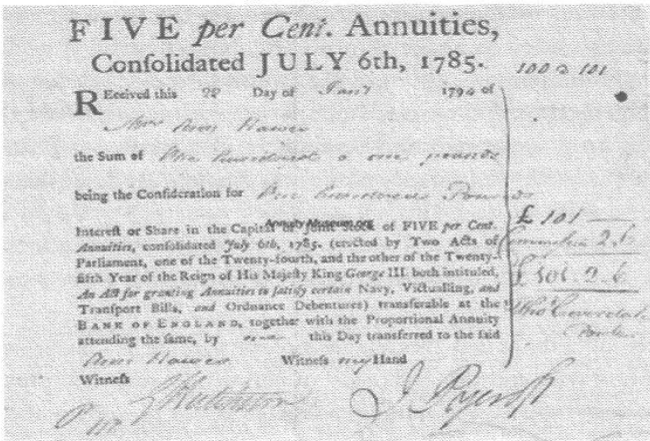 FIVE per Cent. Annuities,
Consolidated JULY 6th, 1785.
100 a 101
REceived this 22 Day of Jany 1794 of
Mrs Ann Hawes
the Sum of One hundred & one pounds
being the Consideration for One hundred Pounds
AnnuityMuseum.org
Interest or Share in the Capital or Joint Stock of FIVE per Cent.
Annuities, consolidated July 6th, 1785. (erected by Two Acts of
Parliament, one of the Twenty-fourth, and the other of the Twenty-
fifth Year of the Reign of His Majesty King George III. both intituled,
An Act for granting Annuities to satisfy certain Navy, Victualling, and
Transport Bills, and Ordnance Debentures) transferable at the
BANK OF ENGLAND, together with the Proportional Annuity
attending the same, by me this Day transferred to the said
Ann Hawes Witness my Hand
Witness
£ 101
2.6
£ 101. 2. 6